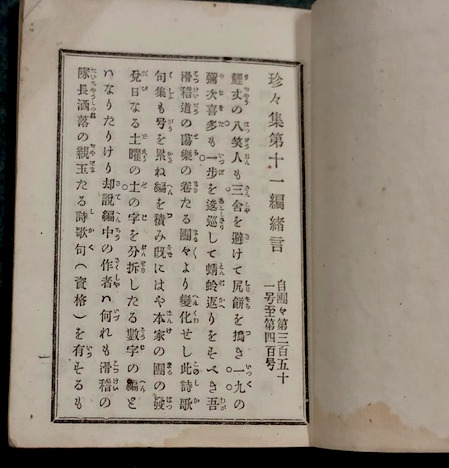 珍々集第十一編緒言
自團々第三百五十
一号至第四百号
鯉丈の八笑人も三舎を避けて尻餅を搗き一九の
彌次喜多も一歩を逡巡して蜻蛉返りをそべき吾
滑稽道の蕩樂の巻たる團々より變化せし此詩歌
句集も号を累ね編を積み既にはや本家の團の發
兌日なる土曜の土の字を分拆したる數字の編と
はなりたりけり却説編中の作者は何れも滑稽の
隊長洒落の親玉たる詩歌句(資格)を有そるも